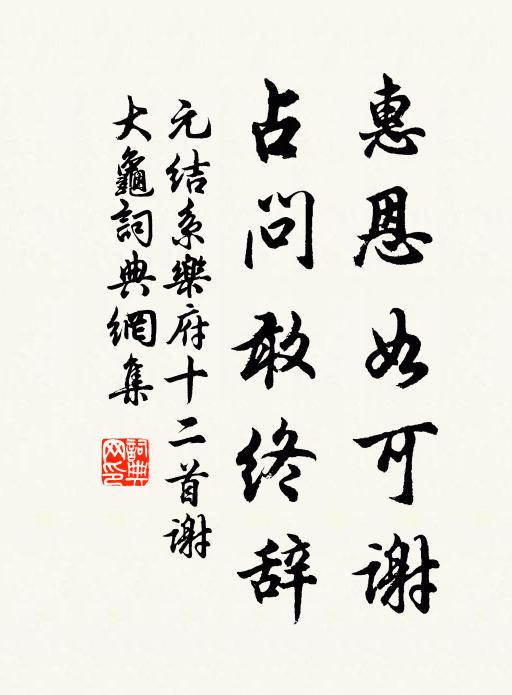 惠恩如可謝
占问敢终辞
元结系樂府十二首謝
大龜詞典網集
詞典
网印